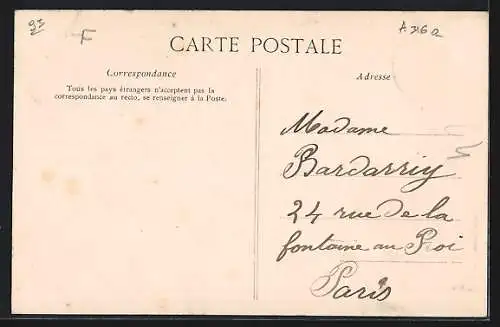 93
F
CARTE POSTALE
Correspondance
Tous les pays étrangers n'acceptent pas la
correspondance au recto, se renseigner à la Poste.
Adresse
Madame
Bardarriy
24 rue de la
fontaine au Roi
Paris